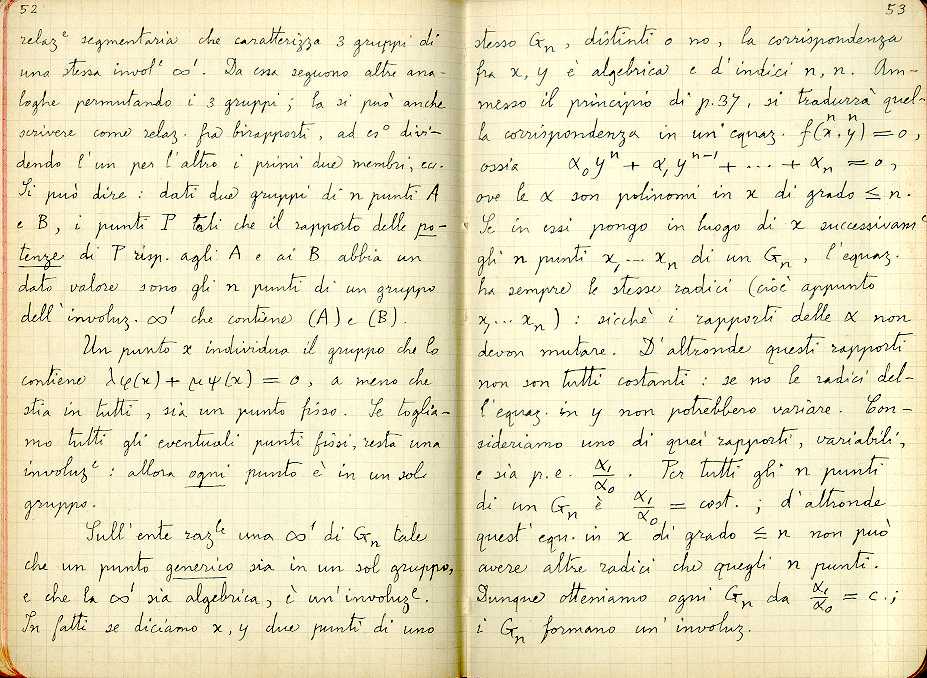 52
relaz.ᵉ segmentaria che caratterizza 3 gruppi di
una stessa invol.ᵉ ∞¹. Da essa seguono altre ana-
loghe permutando i 3 gruppi; la si può anche
scrivere come relaz. fra birapporti, ad es.º divi-
dendo l'un per l'altro i primi due membri, ecc.
Si può dire: dati due gruppi di n punti A
e B, i punti P tali che il rapporto delle po-
tenze di P risp. agli A e ai B abbia un
dato valore sono gli n punti di un gruppo
dell'involuz. ∞¹ che contiene (A) e (B).
Un punto x individua il gruppo che lo
contiene λφ(x) + μψ(x) = 0, a meno che
stia in tutti, sia un punto fisso. Se toglia-
mo tutti gli eventuali punti fissi, resta una
involuz.ᵉ: allora ogni punto è in un sol
gruppo.
Sull'ente raz.ˡᵉ una ∞¹ di Gₙ tale
che un punto generico sia in un sol gruppo,
e che la ∞¹ sia algebrica, è un'involuz.ᵉ.
In fatti se diciamo x, y due punti di uno
53
stesso Gₙ, distinti o no, la corrispondenza
fra x, y è algebrica e d'indici n, n. Am-
messo il principio di p. 37, si tradurrà quel-
la corrispondenza in un'equaz. f(xⁿ, yⁿ) = 0,
ossia α₀yⁿ + α₁yⁿ⁻¹ + ... + αₙ = 0,
ove le α son polinomi in x di grado ≤ n.
Se in essi pongo in luogo di x successivamᵉ
gli n punti x₁ ... xₙ di un Gₙ, l'equaz.
ha sempre le stesse radici (cioè appunto
x₁ ... xₙ): sicchè i rapporti delle α non
devon mutare. D'altronde questi rapporti
non son tutti costanti: se no le radici del-
l'equaz. in y non potrebbero variare. Con-
sideriamo uno di quei rapporti, variabili,
e sia p.e. α₁/α₀. Per tutti gli n punti
di un Gₙ è α₁/α₀ = cost.; d'altronde
quest'equ. in x di grado ≤ n non può
avere altre radici che quegli n punti.
Dunque otteniamo ogni Gₙ da α₁/α₀ = c.;
i Gₙ formano un'involuz.